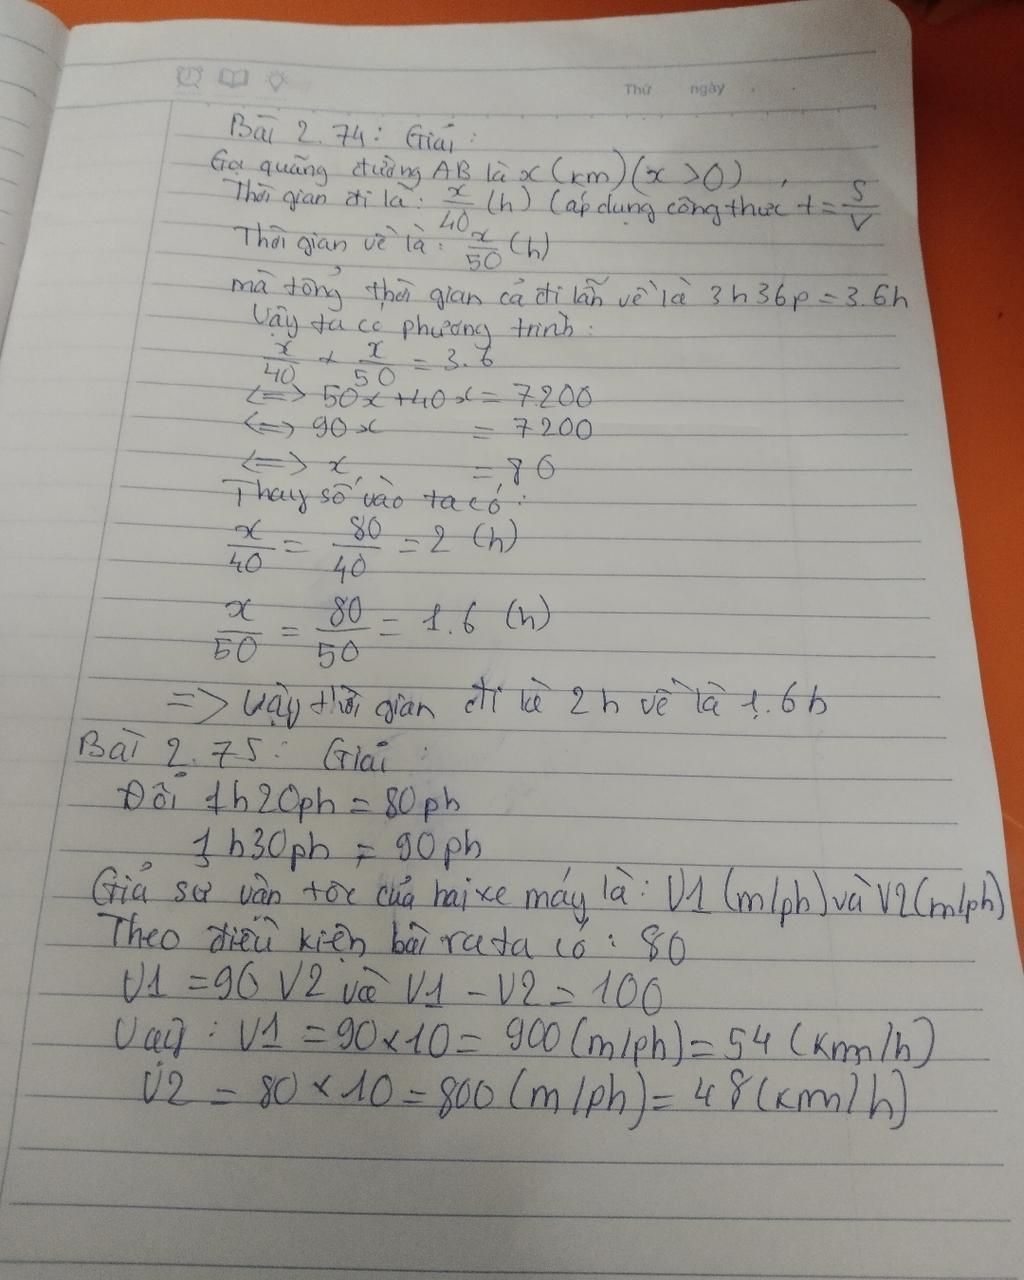 Thứ ngày
Bài 2.74: Giải:
Gọi quãng đường AB là x (km) (x > 0)
Thời gian đi là: x/40 (h) (áp dụng công thức t = S/V
Thời gian về là: x/50 (h)
mà tổng thời gian cả đi lẫn về là 3h36p = 3.6h
Vậy ta có phương trình:
x/40 + x/50 = 3.6
<=> 50x + 40x = 7200
<=> 90x = 7200
<=> x = 80
Thay số vào ta có:
x/40 = 80/40 = 2 (h)
x/50 = 80/50 = 1.6 (h)
=> Vậy thời gian đi là 2h về là 1.6h
Bài 2.75: Giải:
Đổi 1h20ph = 80ph
1h30ph = 90ph
Giả sử vận tốc của hai xe máy là: V1 (m/ph) và V2 (m/ph)
Theo điều kiện bài ra ta có: 80
V1 = 90 V2 và V1 - V2 = 100
Vậy: V1 = 90 x 10 = 900 (m/ph) = 54 (km/h)
V2 = 80 x 10 = 800 (m/ph) = 48 (km/h)